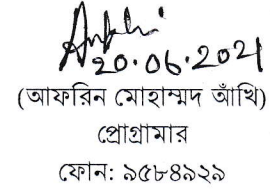 20.06.2021
(আফরিন মোহাম্মদ আঁখি)
প্রোগ্রামার
ফোন: ৯৫৮৪৯২৯